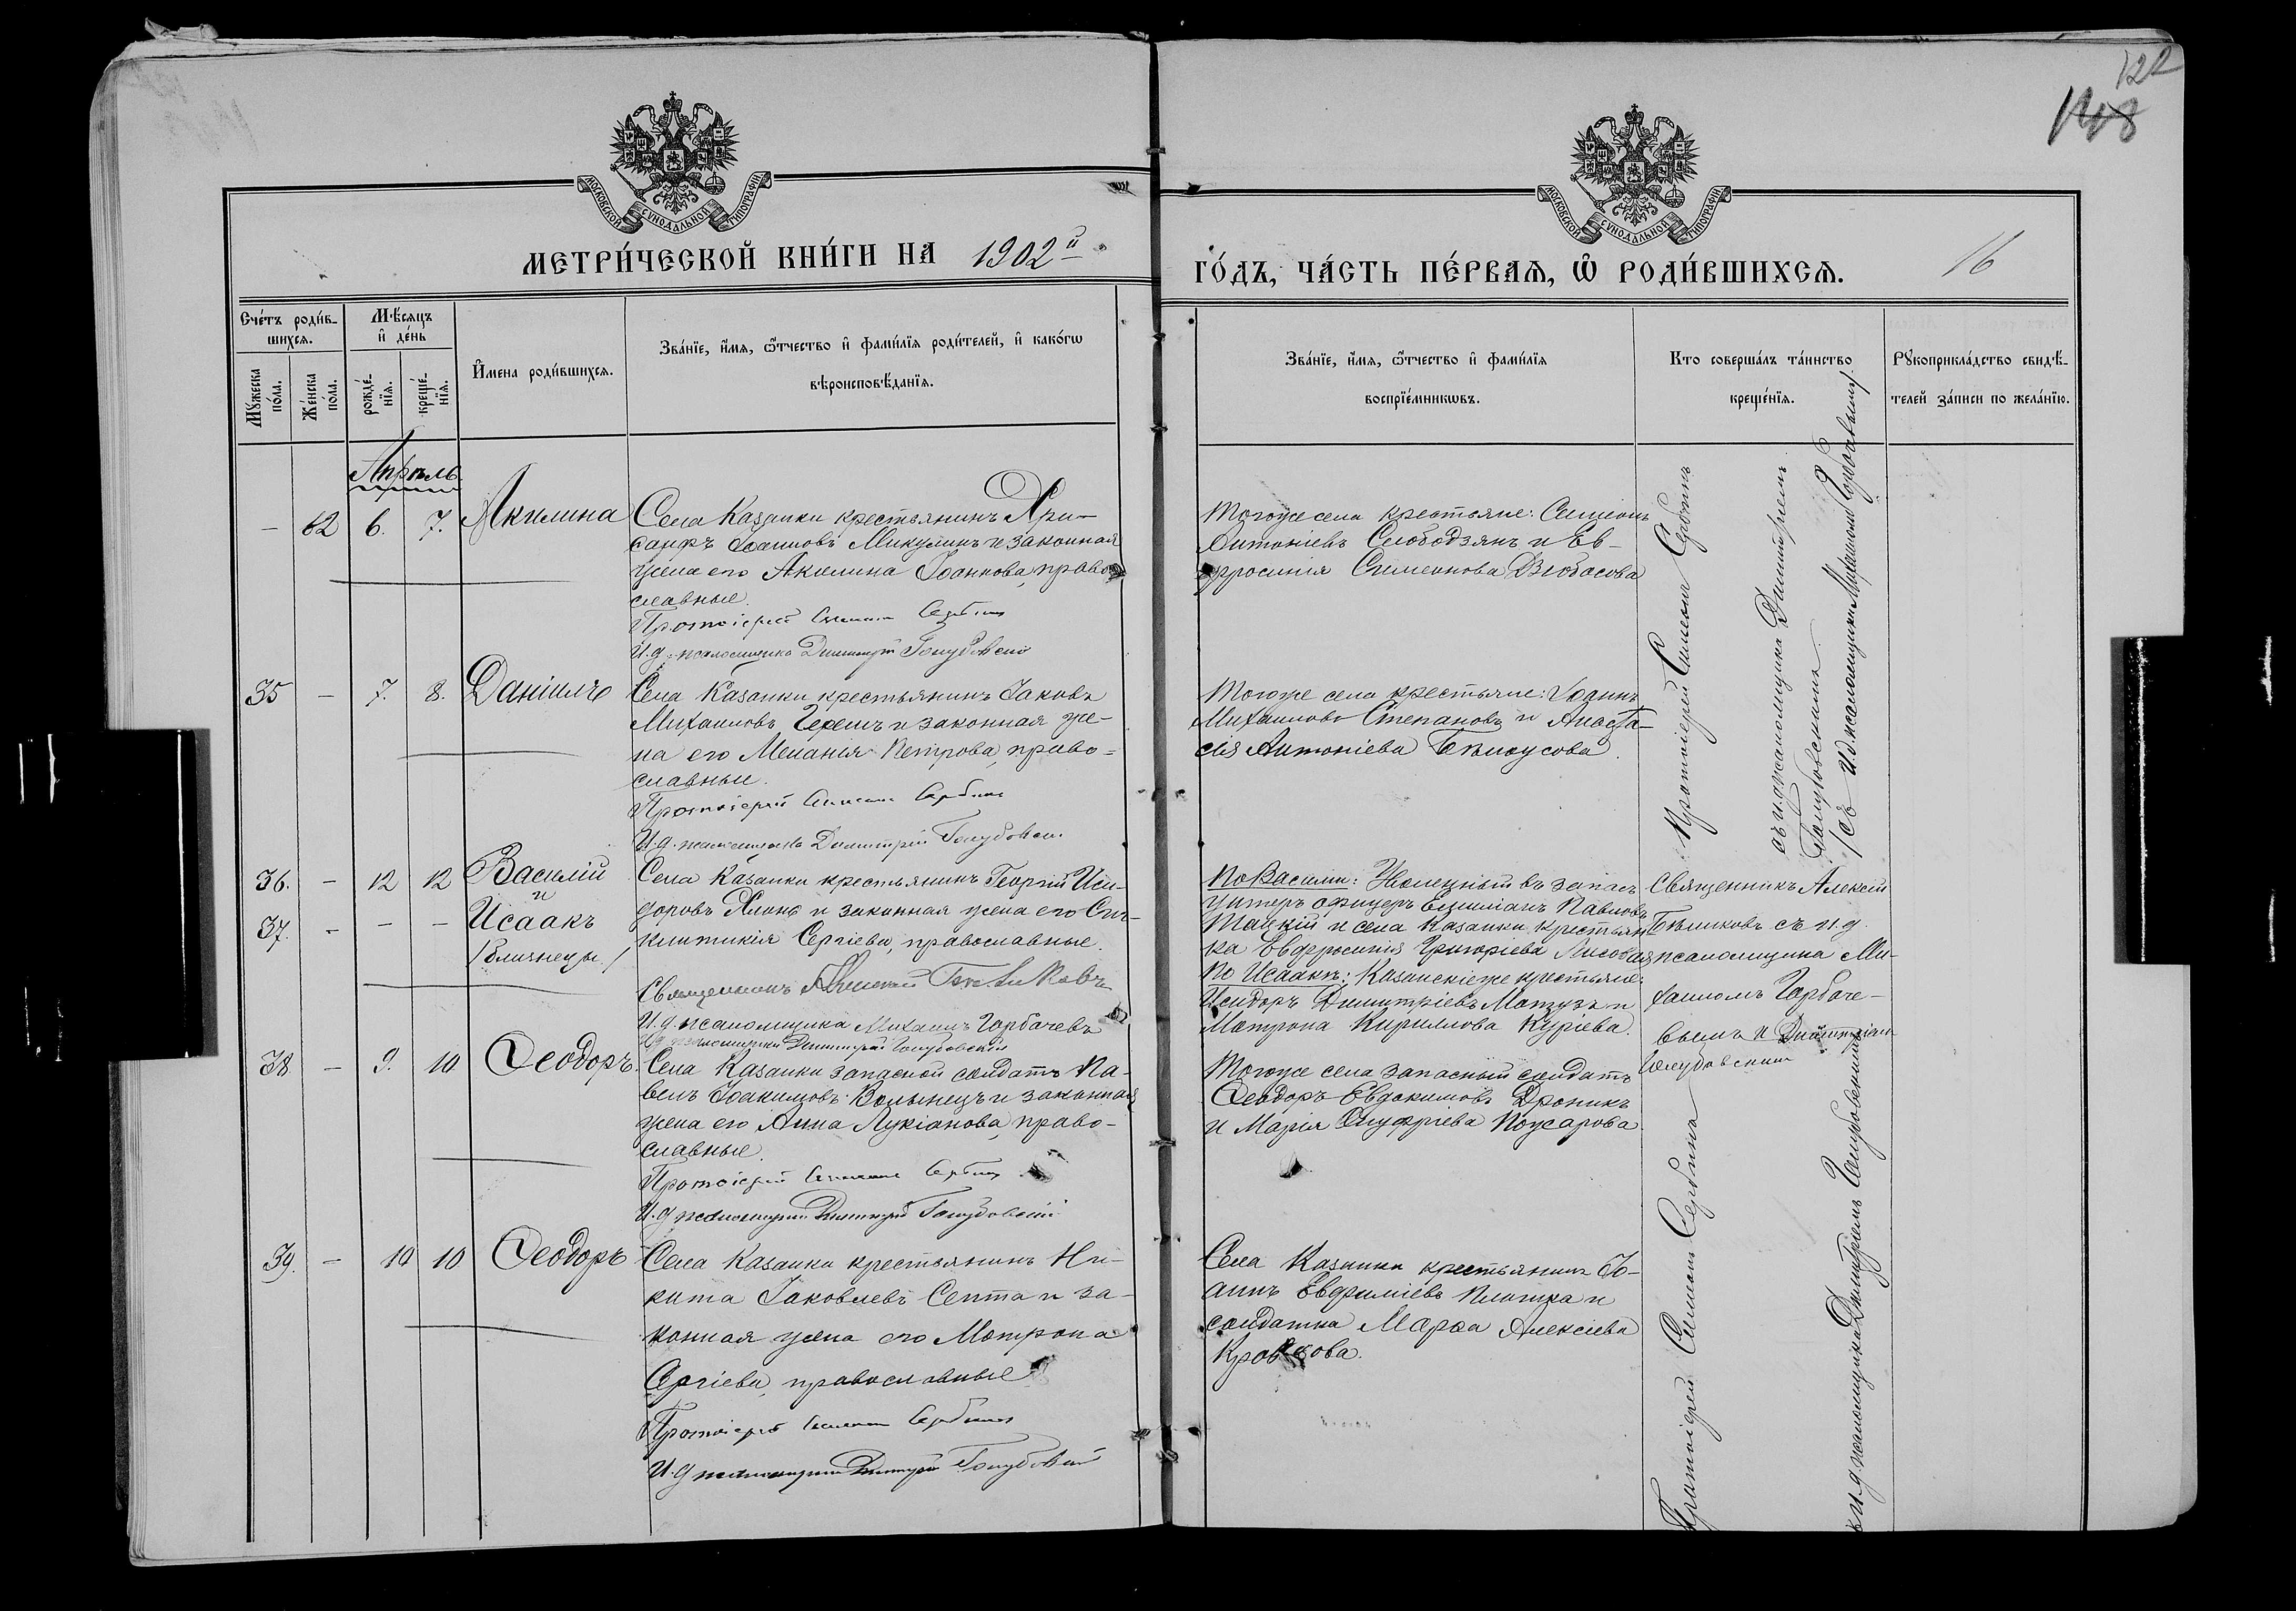 122
148
МОСКОВСКОЙ СѴНОДАЛЬНОЙ ТИПОГРАФІИ
МОСКОВСКОЙ СѴНОДАЛЬНОЙ ТИПОГРАФІИ
МЕТРИ́ЧЕСКОЙ КНИ́ГИ НА 1902й
ГО́ДЪ, ЧА́СТЬ ПЕ́РВАѦ, Ѡ҆ РОДИ́ВШИХСѦ.
16
Сче́тъ роди́в-
шихсѧ.
Мꙋ́жеска по́ла.
Же́нска по́ла.
Мѣ́сяцъ
и҆ де́нь
рожде́-
нїѧ.
креще́-
нїѧ.
И҆мена роди́вшихсѧ.
Зва́нїе, и҆́мѧ, ѻ҆́тчество и҆ фами́лїѧ роди́телей, и҆ како́гѡ
вѣроисповѣ́данїѧ.
Зва́нїе, и҆́мѧ, ѻ҆́тчество и҆ фами́лїѧ
воспрїе́мникѡвъ.
Кто соверша́лъ та́инство
креще́нїѧ.
Рꙋкоприкла́дство свидѣ́-
телей за́писи по жела́нїю.
Апрѣль
— 62 6. 7. Акилина
Села Казанки крестьянинъ Хри-
санфъ Іоанновъ Микулинъ и законная
жена его Акилина Іоаннова, право
славные.
Протоіерей Симеонъ Сербинъ
И.д. псаломщика Димитрій Голубовскій
Тогоже села крестьяне: Симеонъ
Антоніевъ Слободзянъ и Ев-
фросинія Симеонова
Протоіерей Симеонъ Сербинъ
съ и.д. псаломщика Димитріемъ
Голубовскимъ
съ И.д. псаломщика Михаиломъ Горбачевымъ.
35 — 7. 8. Даніилъ
Села Казанки крестьянинъ Іаковъ
Михаиловъ Черешъ и законная же-
на его Меланья Петрова, право-
славные.
Протоіерей Симеонъ Сербинъ
И.д. псаломщика Димитрій Голубовскій
Тогоже села крестьяне: Іоаннъ
Михаиловъ Степановъ и Анаста-
сія Антоніева Бѣлоусова.
36. — 12 12 Василій
и
37. - — — Исаакъ
/Близнецы/
Села Казанки крестьянинъ Георгій Иси-
доровъ и законная жена его Син-
клитикія Сергіева, православные.
Священникъ Алексій Бѣликовъ
И.д. псаломщика Михаилъ Горбачевъ
И.д. псаломщика Димитрій Голубовскій
По Василіи: Уволенный въ запасъ
унтеръ офицеръ Емиліанъ Павловъ
и села Казанки крестьян
ка Евфросинія Григоріева Лисовая
По Исаакѣ: Казанскіеже крестьяне:
Исидоръ Димитріевъ Матузъ и
Матрона Кириллова Куріева.
Священникъ Алексій
Бѣликовъ съ и.д.
псаломщика Ми-
хаиломъ Горбаче-
вымъ и Димитріем
Голубовскимъ
38. — 9. 10 Ѳеодоръ.
Села Казанки запасной солдатъ Па-
велъ Іоакимовъ Волынецъ и законная
жена его Анна Лукіанова, право-
славные.
Протоіерей Симеонъ Сербинъ
И.д. псаломщика Димитрій Голубовскій
Тогоже села запасный солдатъ
Ѳеодоръ Евдокимовъ Дроникъ
и Марія Онуфріева Пожарова
39. — 10 10 Ѳеодоръ
Села Казанки крестьянинъ Ни-
кита Іаковлевъ Септа и за-
конная жена его Матрона
Сергіева, православные
Протоіерей Симеонъ Сербинъ
И.д. псаломщика Димитрій Голубовскій
Села Казанки крестьянинъ Іо-
аннъ Евфиміевъ Плотка и
солдатка Марѳа Алексіева
Протоіерей Симеонъ Сербинъ
и.д. псаломщика Димитріемъ Голубовскимъ